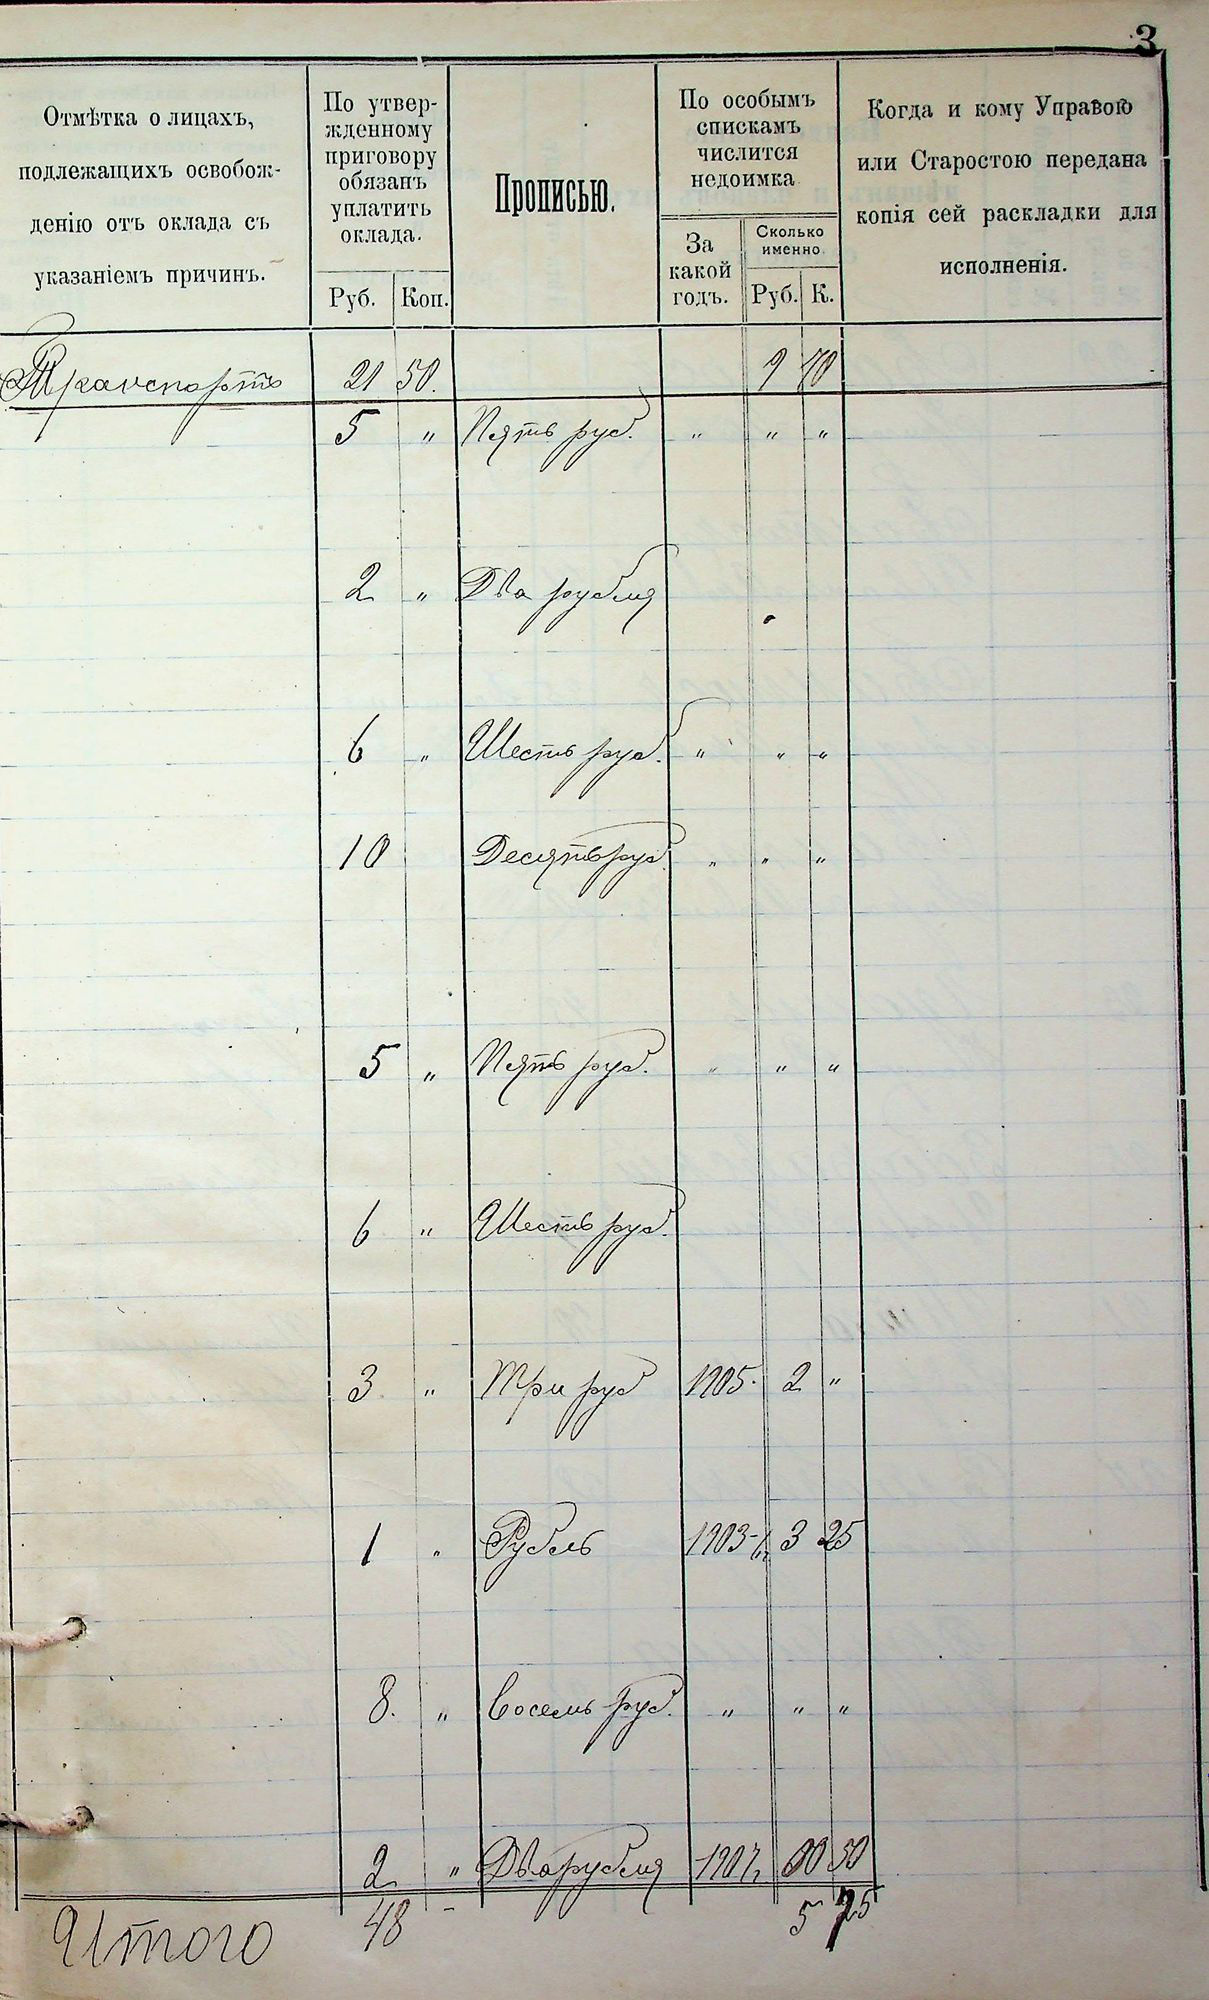 3
Отмѣтка о лицахъ,
подлежащихъ освобож-
денію отъ оклада съ
указаніемъ причинъ.
По утвер-
жденному
приговору
обязанъ
уплатить
оклада.
Руб. Коп.
Прописью.
По особымъ
спискамъ
числится
недоимка
За
какой
годъ.
Сколько
именно
Руб. К.
Когда и кому Управою
или Старостою передана
копія сей раскладки для
исполненія.
Транспортъ 21 50. 9 70
5 " Пять руб. " " "
2 " Два рубля
6 " Шесть руб. " " "
10 Десять руб. " " "
5 " Пять руб. " " "
6 " Шесть руб.
3 " Три руб 1905. 2 "
1 " Рубль 1903- 3 25
8. " Восемь руб. " " "
2 " Два рубля 1907 00 50
Итого 48 - 5 75